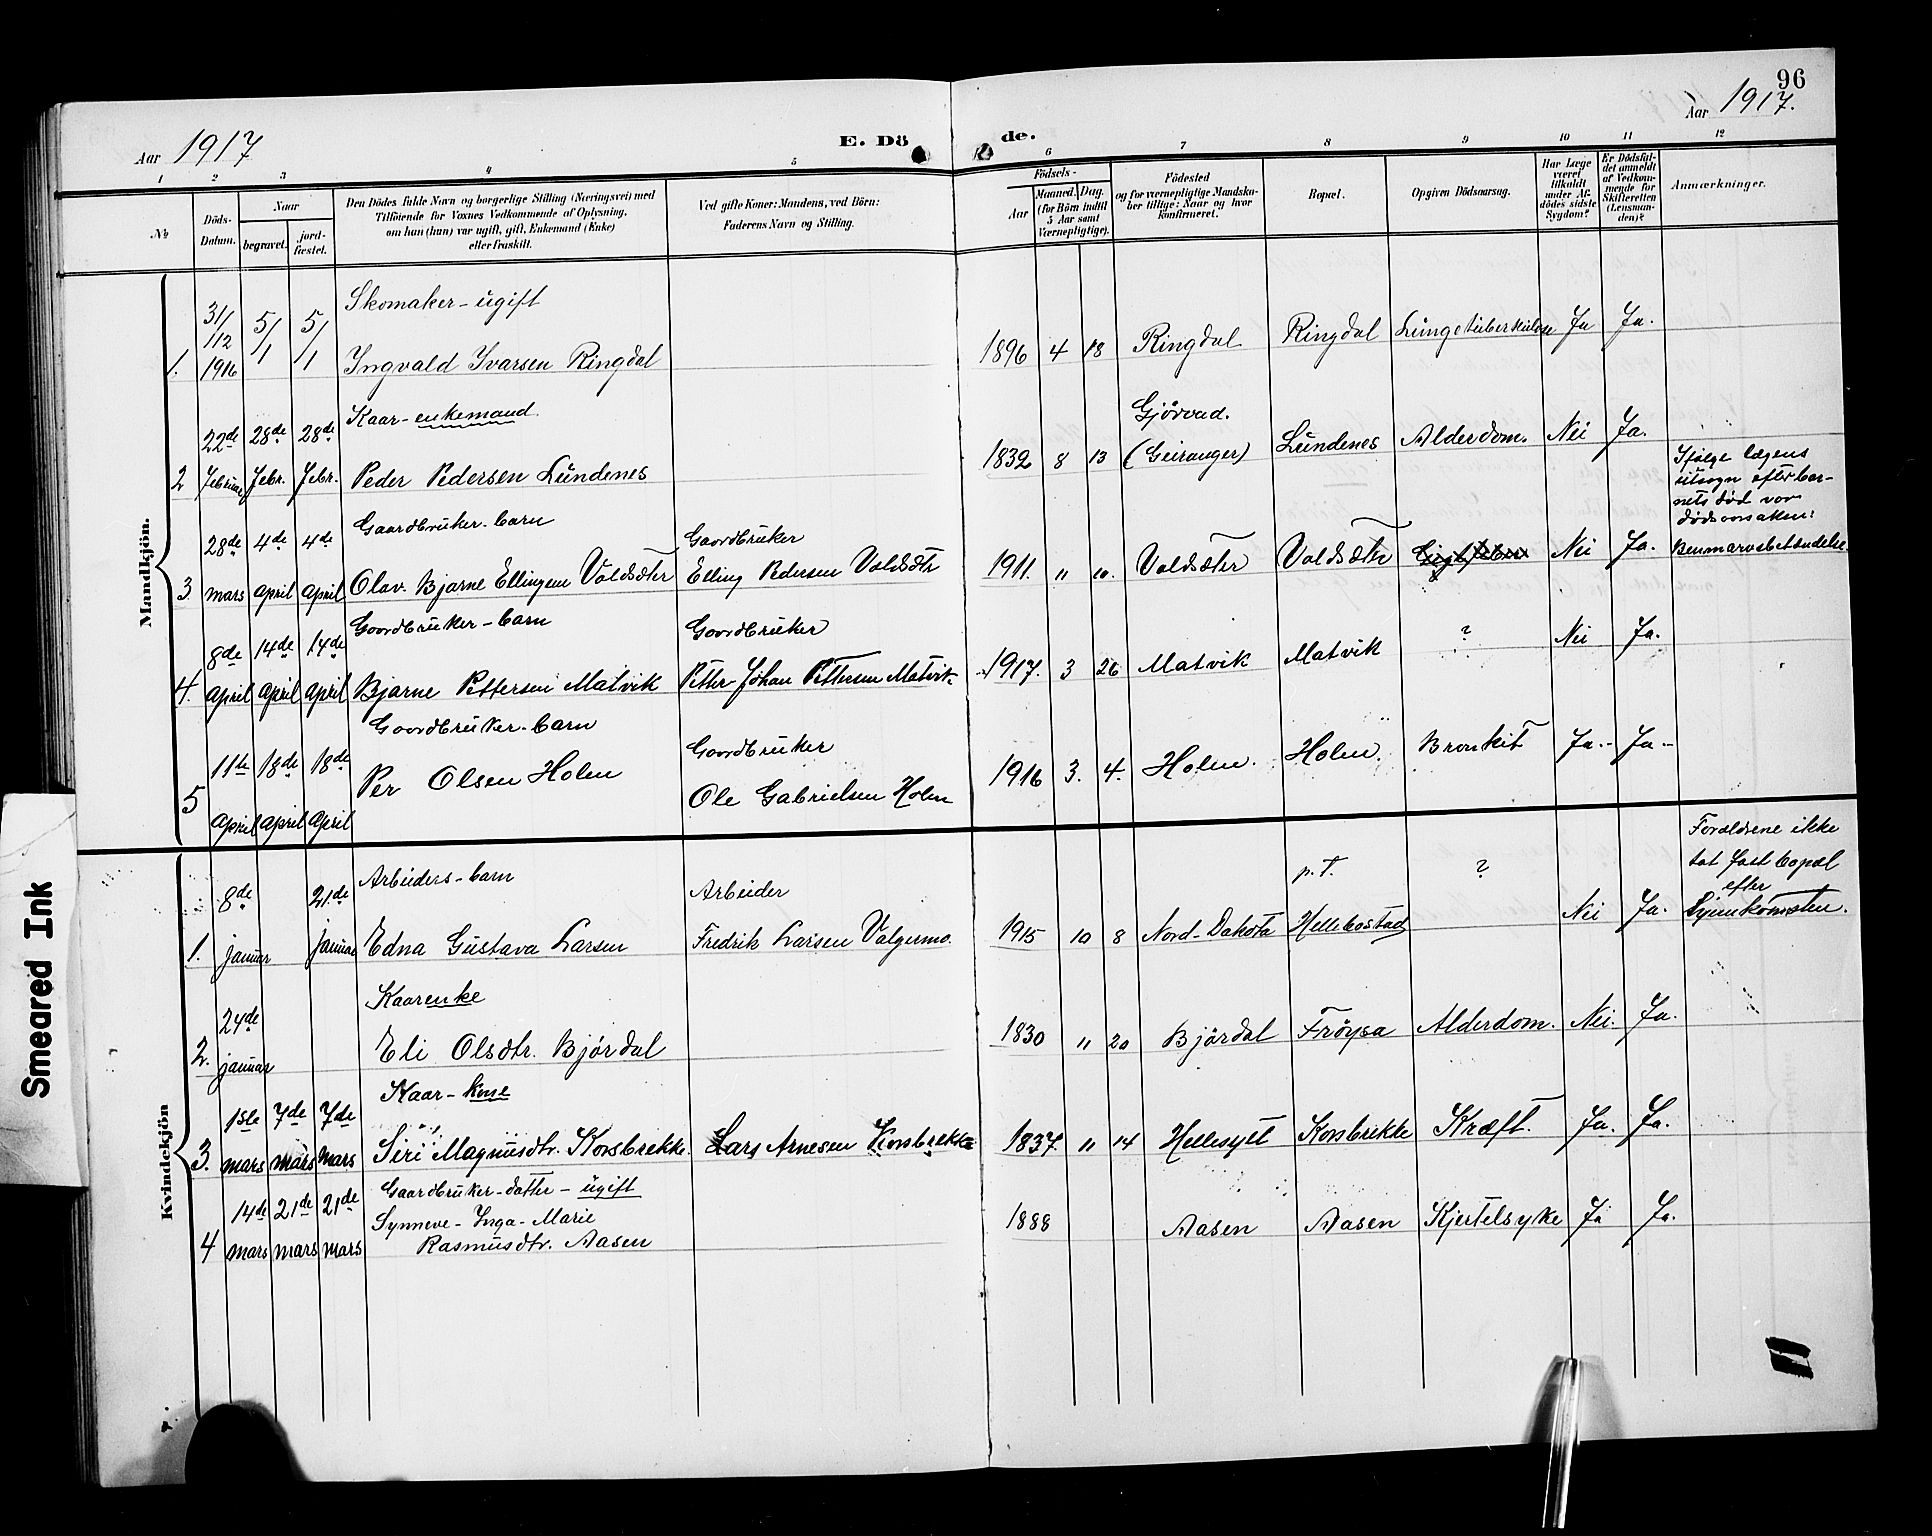 96
Aar 1917
E. Dö de.
Aar 1917.
1 2 3 4 5 6 7 8 9 10 11 12
№
Döds-Datum.
Naar
begravet.
jord-fæstet.
Den Dödes fulde Navn og borgerlige Stilling (Næringsvei) med
Tilföiende for Voxnes Vedkommende af Oplysning,
om han (hun) var ugift, gift, Enkemand (Enke)
eller fraskilt.
Ved gifte Koner: Mandens, ved Börn:
Faderens Navn og Stilling.
Födsels-
Aar
Maaned. Dag.
(for Börn indtil
5 Aar samt
Værnepligtige).
Födested
og for værnepligtige Mandska-
ber tillige: Naar og hvor
konfirmeret.
Bopæl.
Opgiven Dödsaarsag.
Har Læge
været
tilkaldt
under Af-
dödes sidste
Sygdom?
Er Dödsfal-
det anmeldt
af Vedkom-
mende for
Skifteretten
(Lensman-
den)?
Anmærkninger.
Mandkjön.
31/12 5/1 5/1 Skomaker - ugift
1. 1916 Ingvald Ivarsen Ringdal 1896 4 18 Ringdal Ringdal Lungetuberkulose Ja Ja.
22de 28de 28de Kaar-enkemand. Gjörvad.
2 Februar Febr. Febr. Peder Pedersen Lundenes 1832 8 13 (Geiranger) Lundenes Alderdom. Nei Ja.
Ifølge lægens
utsagn efter bar-
nets död var
dödsorsaken:
28de 4de 4de Gaardbruker-barn Gaardbruker
3. mars april april Olav Bjarne Ellingsen Voldsæter Elling Pedersen Voldsæter 1911. " 10. Voldsæter Voldsæter Nei Ja. Benmarvsbetændelse.
8de 14de 14de Gaardbruker-barn Gaardbruker
4. april april april Bjarne Pettersen Matvik Petter Johan Pettersen Matvik 1917. 3 26 Matvik Matvik ? Nei Ja.
11te 18de 18de Gaardbruker-barn Gaardbruker
5 april april april Per Olsen Holen Ole Gabrielsen Holen 1916 3. 4. Holen. Holen. Bronkit Ja.- Ja.-
Kvindekjön
Forældrene ikke
tat fast bopæl
efter
hjemkomsten.
8de 21de Arbeiders-barn Arbeider p.t. ?
1. januar januar Edna Gustava Larsen Fredrik Larsen Valgermo. 1915 10 8 Nord-Dakota Hellebostad Nei Ja.
24de Kaarenke
2. januar Eli Olsdtr. Björdal 1830 " 20 Björdal Fröysa Alderdom. Nei. Ja.
1ste 7de 7de Kaar-kone
3. mars mars mars Siri Magnusdtr. Korsbrekke. Lars Arnesen Korsbrekke 1837. " 14 Hellesylt Korsbrekke Kræft. Ja. Ja.
14de 21de 21de Gaardbruker-datter - ugift
Synneve-Inga-Marie
4 mars mars mars Rasmusdtr. Aasen 1888 Aasen Aasen Kjertelsyke Ja Ja.
Smeared Ink